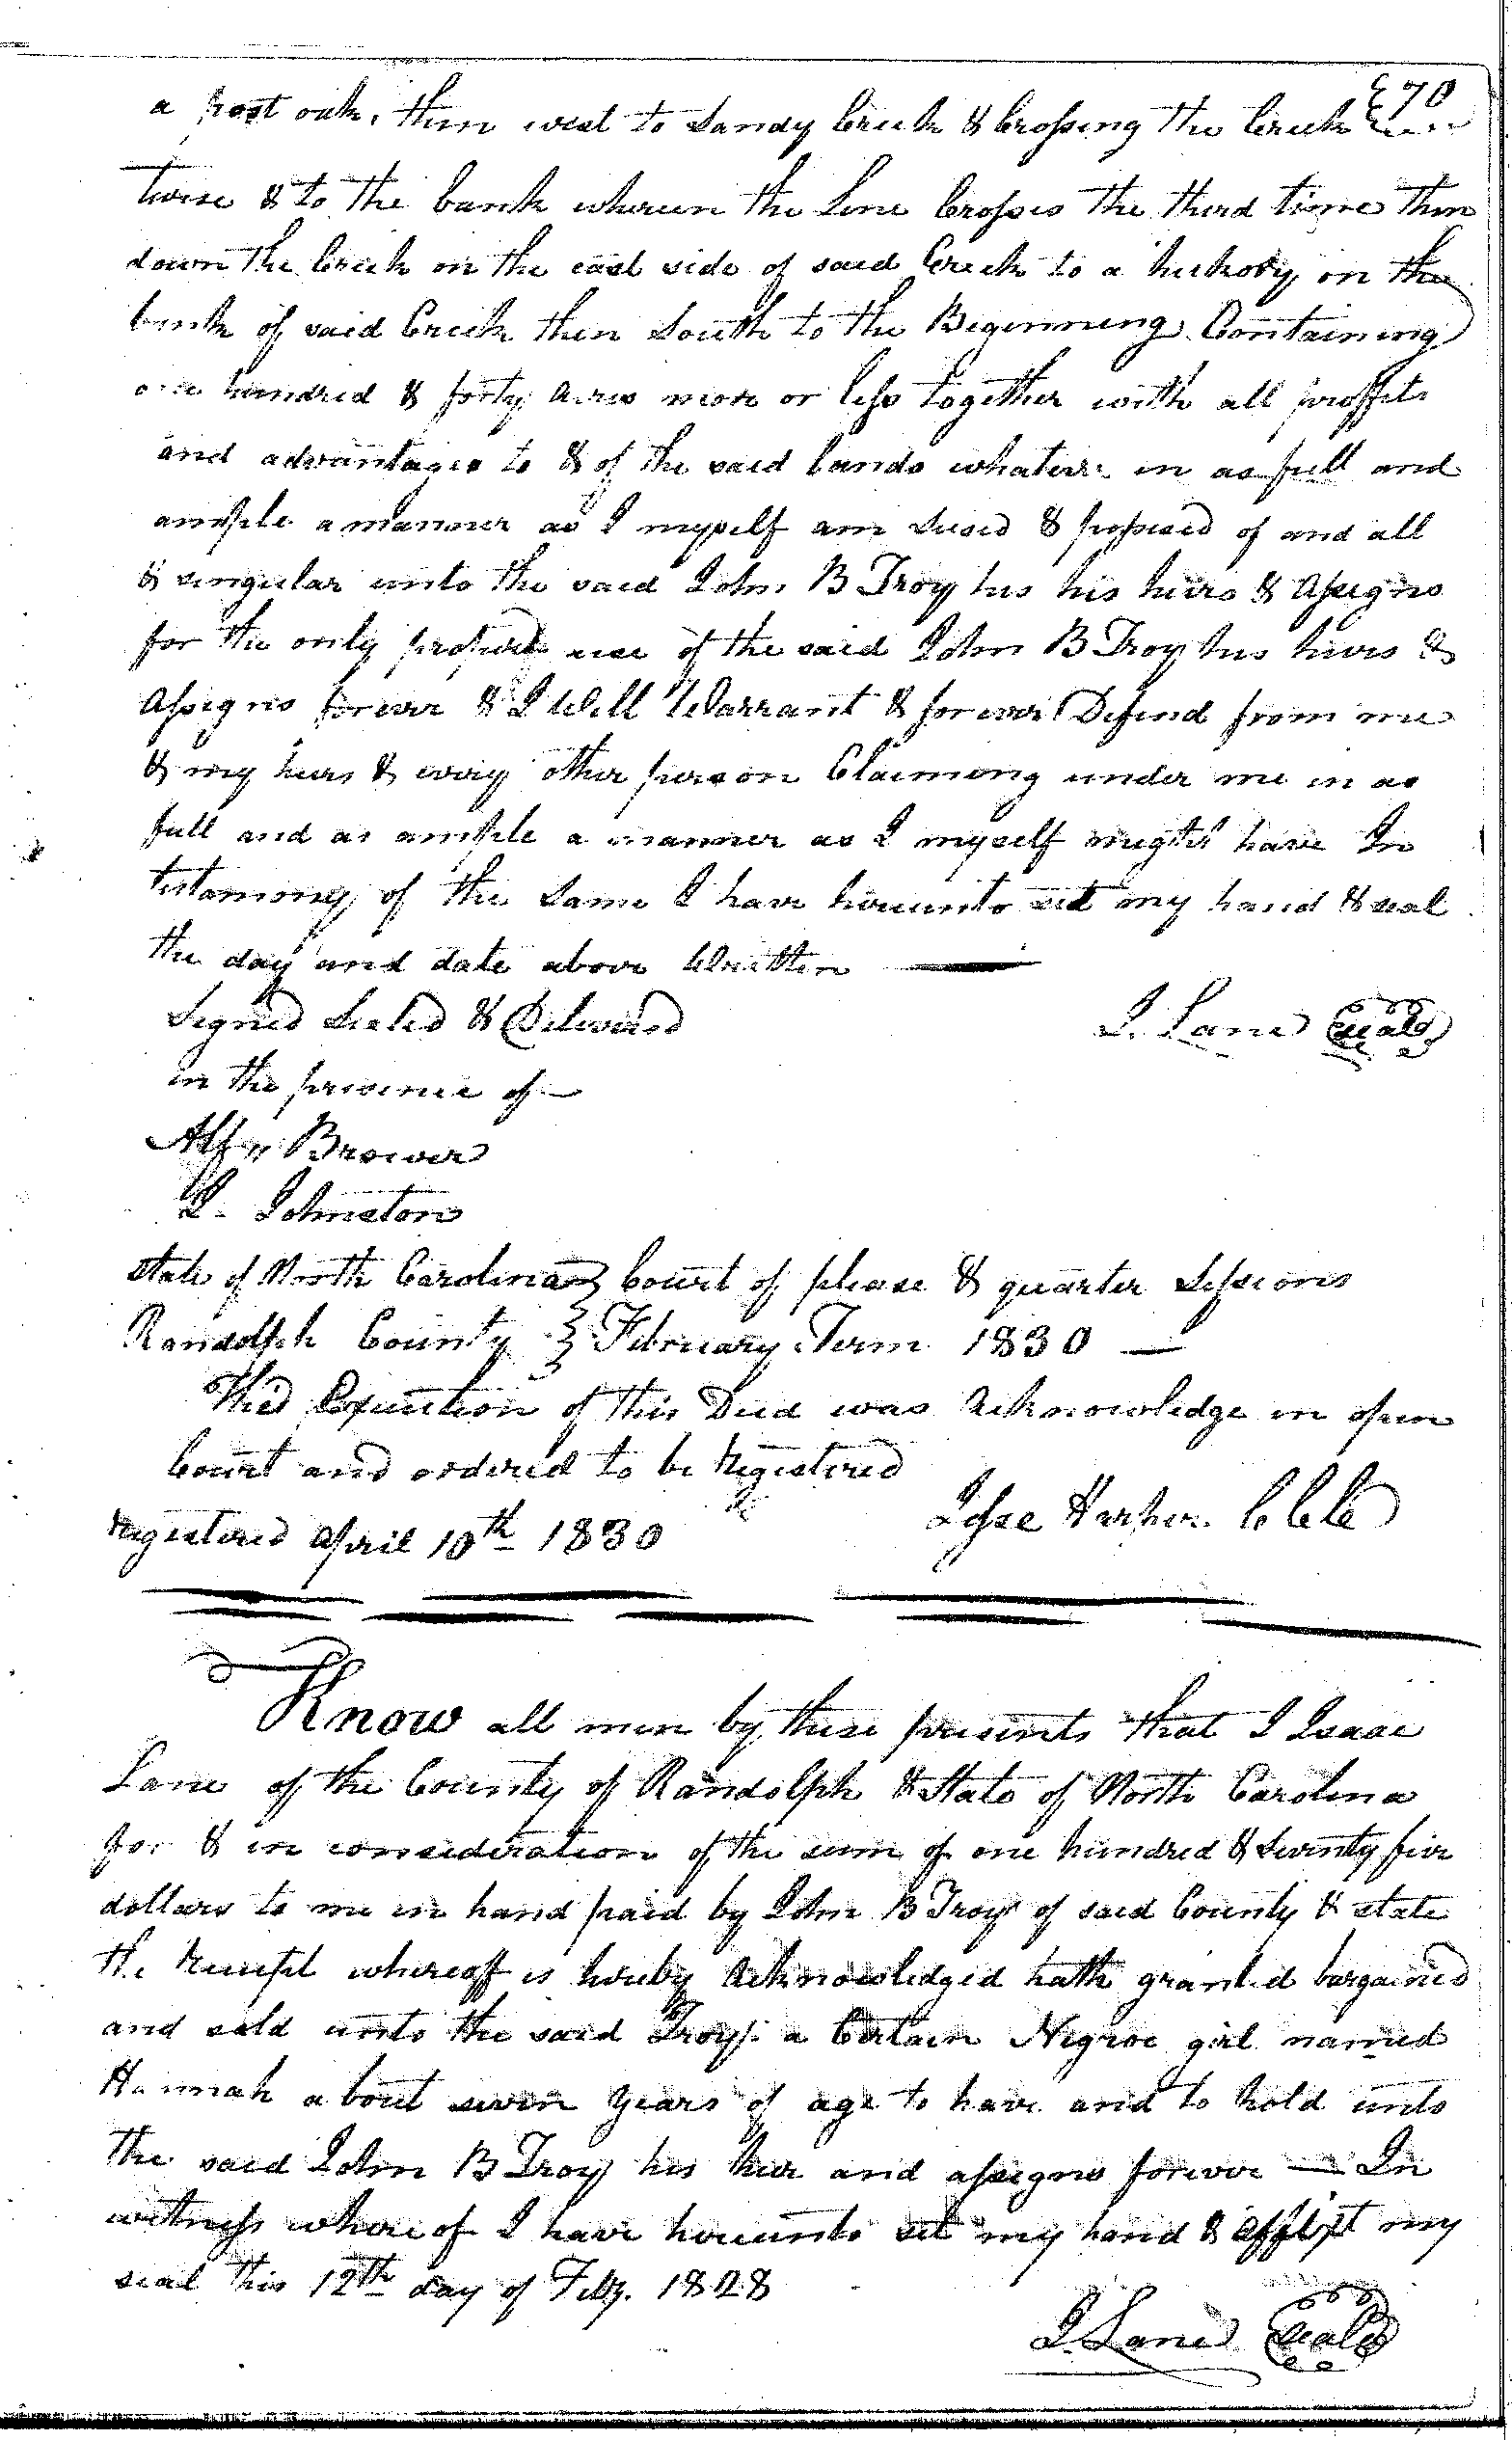 70
a post oak, then west to Sandy Creek & Crossing the Creek
twise & to the bank wherein the Line Crosses the third time then
down the Creek on the east side of said Creek to a hickory on the
bank of said Creek then South to the Beginning Containing
one hundred & forty Acres more or less together with all proffits
and advantages to & of the said lands whatever in as full and
ample a manner as I myself am Seised & possesed of and all
& singular unto the said John B Troy his his heirs & Assigns
for the only proper use of the said John B Troy his heirs &
Assigns forever & I Will Warrant & forever Defend from me
& my heirs & every other person Claiming under me in as
full and as ample a manner as I myself might have In
testamony of the Same I have hereunto set my hand & seal
the day and date above Written
Signed Sealed & Delivered
I. Lane Seal
in the presence of
Alfd Brower
I. Johnston
State of North Carolina } Court of please & quarter Sessions
Randolph County } February Term 1830
The Execution of this Deed was Acknowledge in open
Court and ordered to be Registered
Jesse Harper C Clk
Registered April 10th 1830
Know all men by these presents that I Isaac
Lane of the County of Randolph & State of North Carolina
for & in consideration of the sum of one hundred & Seventy five
dollars to me in hand paid by John B Troy of said County & state
the Receipt whereoff is hereby Acknowledged hath granted bargained
and sold unto the said Troy a Certain Negroe girl named
Hannah about seven years of age to have and to hold unto
the said John B Troy his heir and assigns forever — In
witness where of I have hereunto set my hand & affixt my
seal this 12th day of Feby. 1828
I. Lane Seal